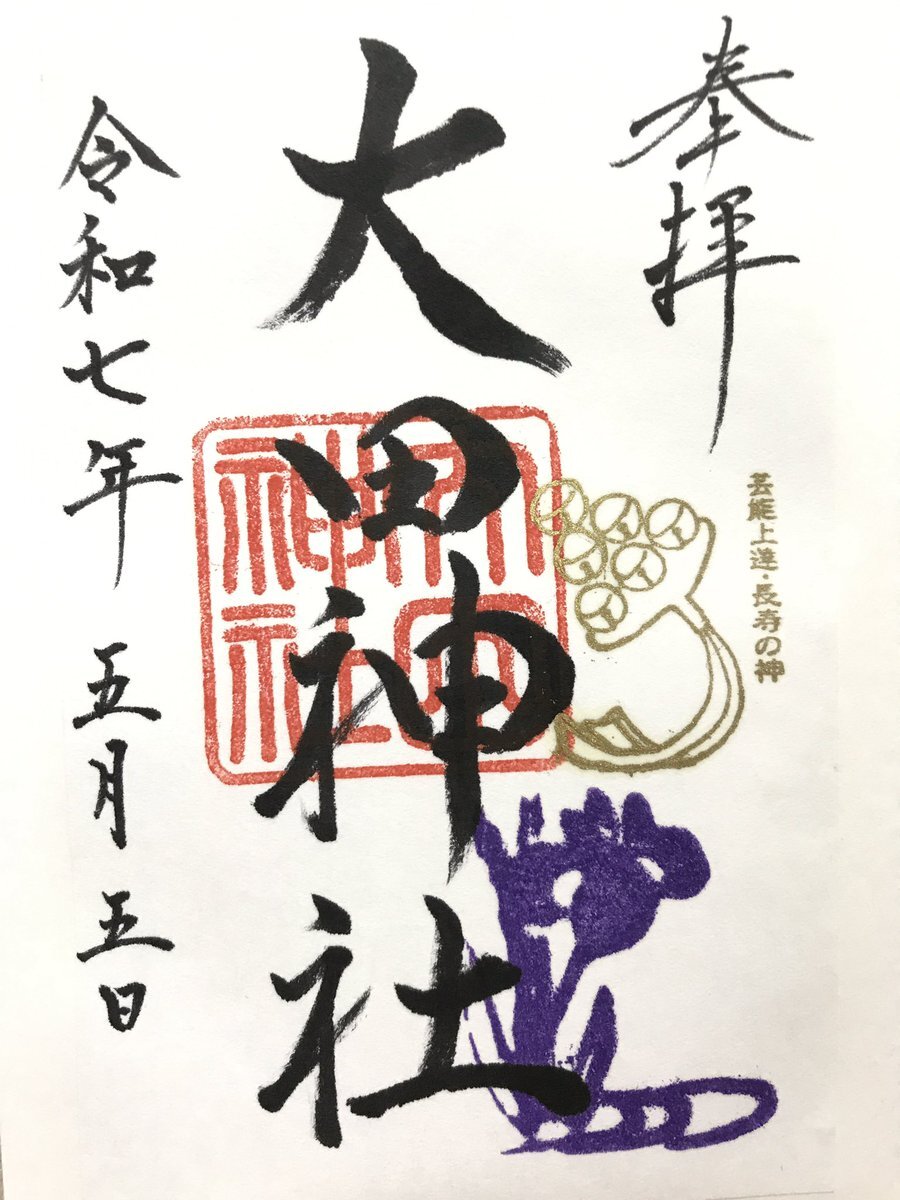 奉拝
芸能上達・長寿の神
大田神社
大田神社
令和七年 五月五日